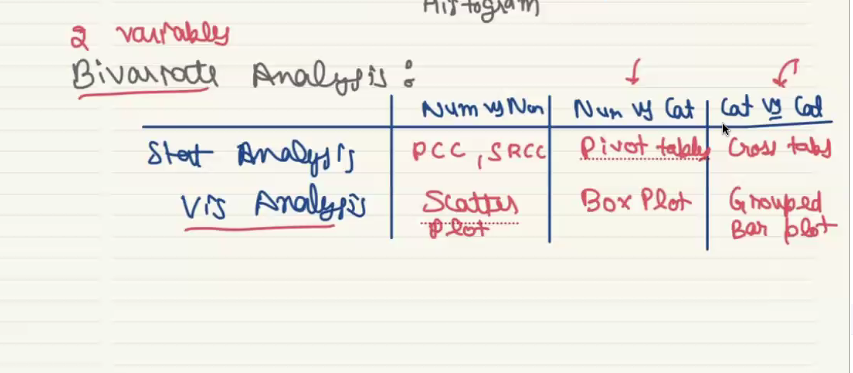 Histogram
2 variables
Bivariate Analysis :
Num vs Num Num vs Cat Cat vs Cat
Stat Analysis PCC, SRCC Pivot table Cross tabs
Vis Analysis Scatter Plot Box Plot Grouped Bar plot